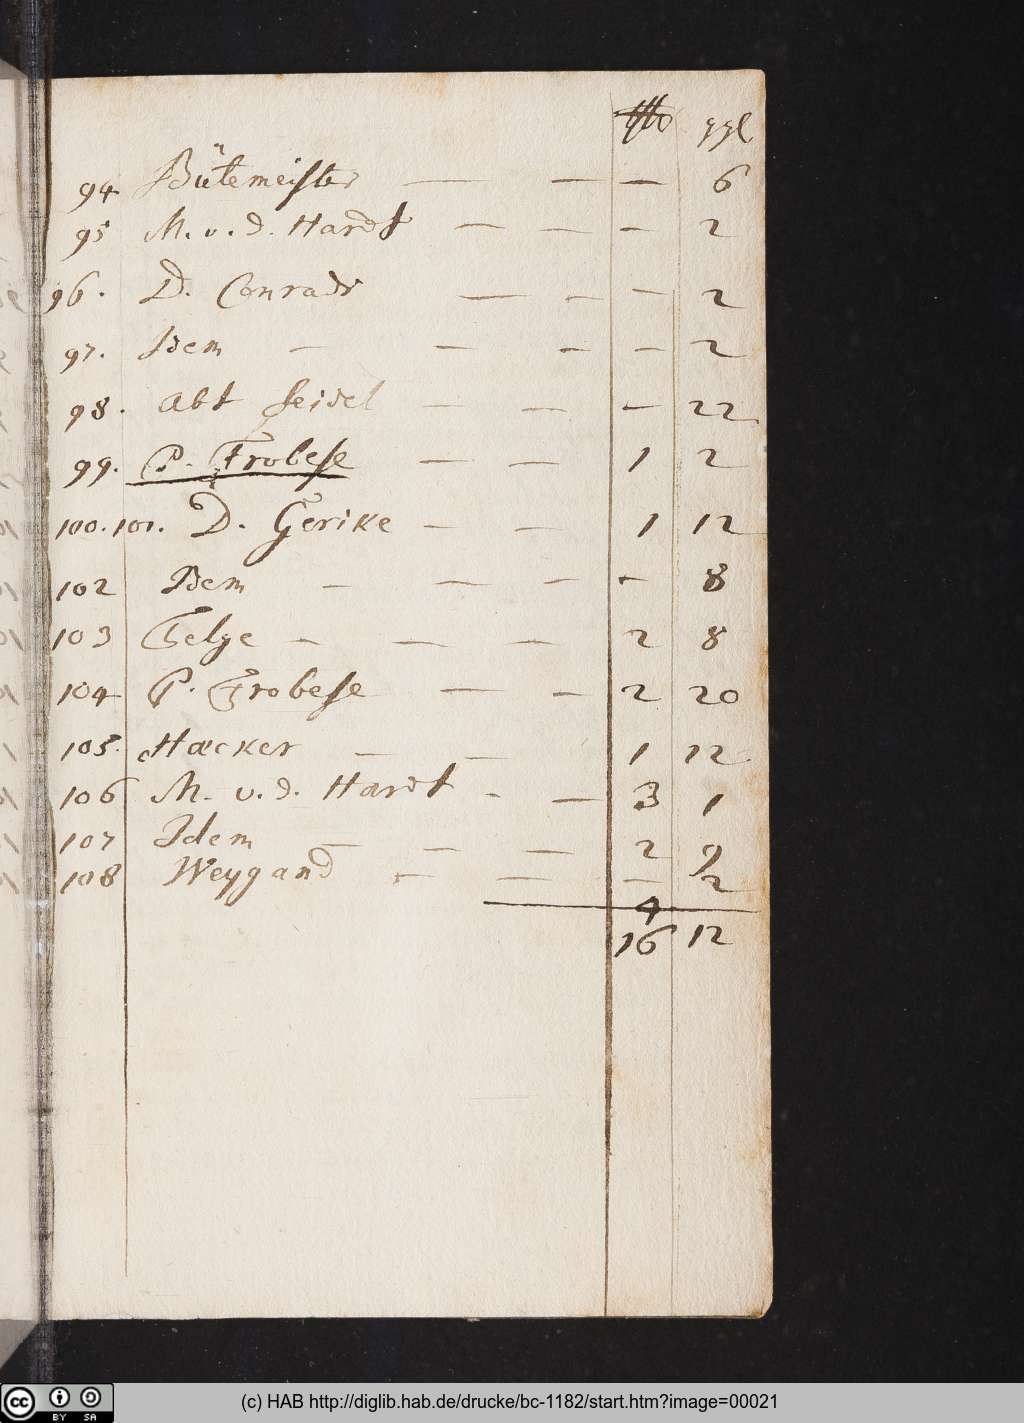 rth ggl
94 Bütemeister — — — 6
95 M. v. d. Hardt — — — 2
96. D. Conradi — — — 2
97. Idem — — — — 2
98. Abt Seidel — — — 22
99. P. Frobese — — 1 2
100. 101. D. Gerike — — 1 12
102 Idem — — — — 8
103 Telge — — — 2 8
104 P. Frobese — — 2 20
105. Hacker — — 1 12
106 M. v. d. Hardt — — 3 1
107 Idem — — — 2 9
108 Weygand — — — 2
4
16 12
(c) HAB http://diglib.hab.de/drucke/bc-1182/start.htm?image=00021
cc BY SA